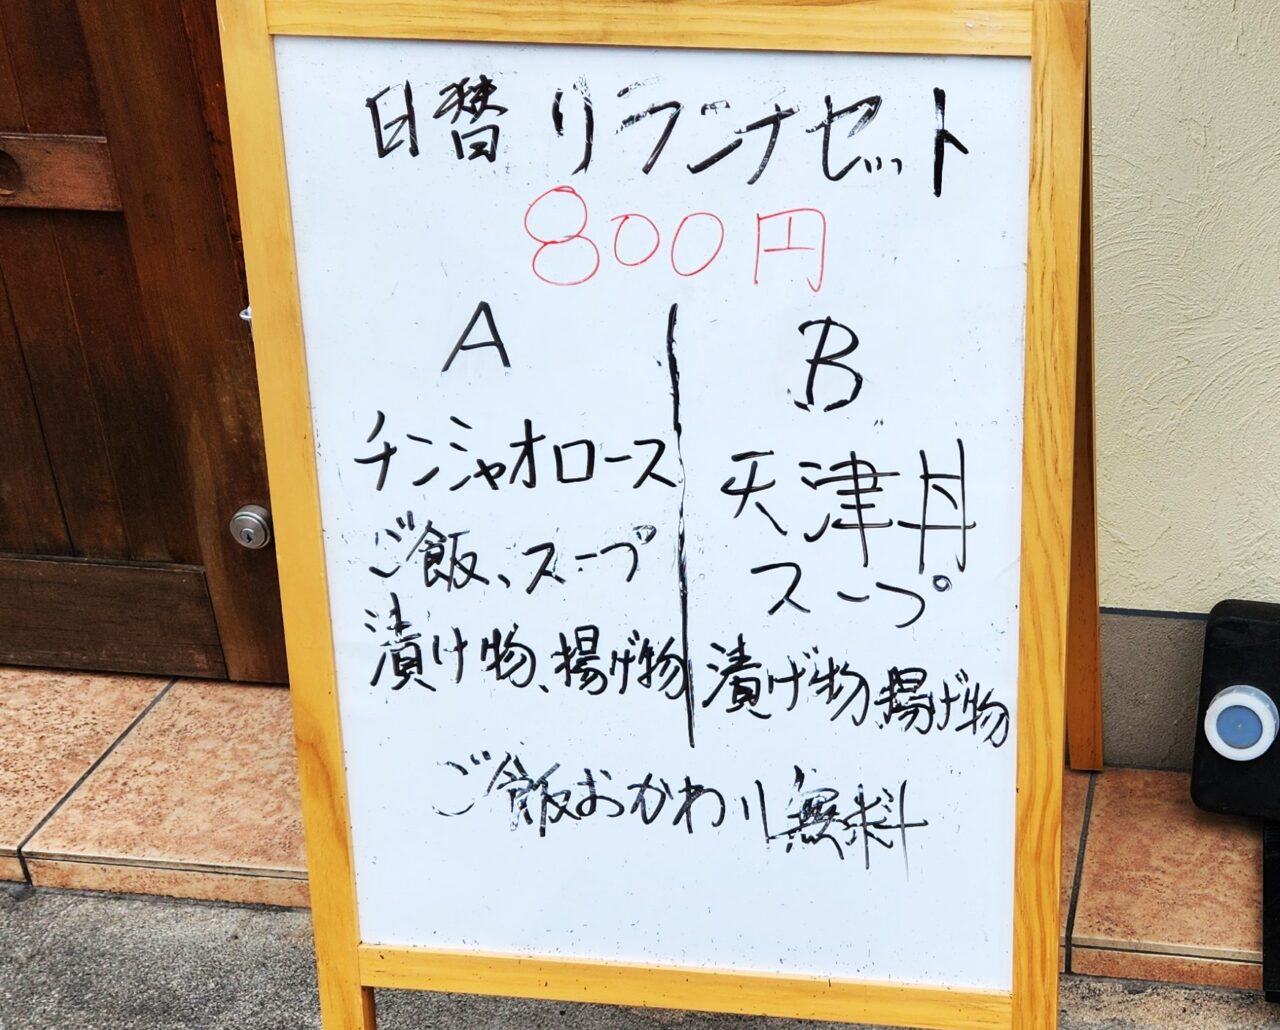 日替りランチセット
800円
A
チンジャオロース
ご飯、スープ
漬け物、揚げ物
B
天津丼
スープ
漬げ物 揚げ物
ご飯おかわり無料